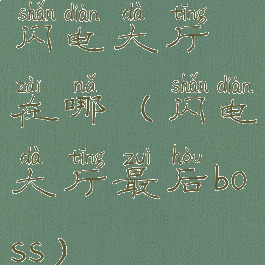 shǎn diàn dà tīng
闪电大厅
zài nǎ shǎn diàn
在哪(闪电
dà tīng zuì hòu
大厅最后bo
ss)